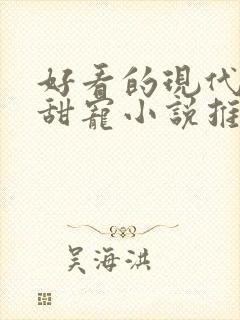 好看的現代
甜寵小說推
吴海洪